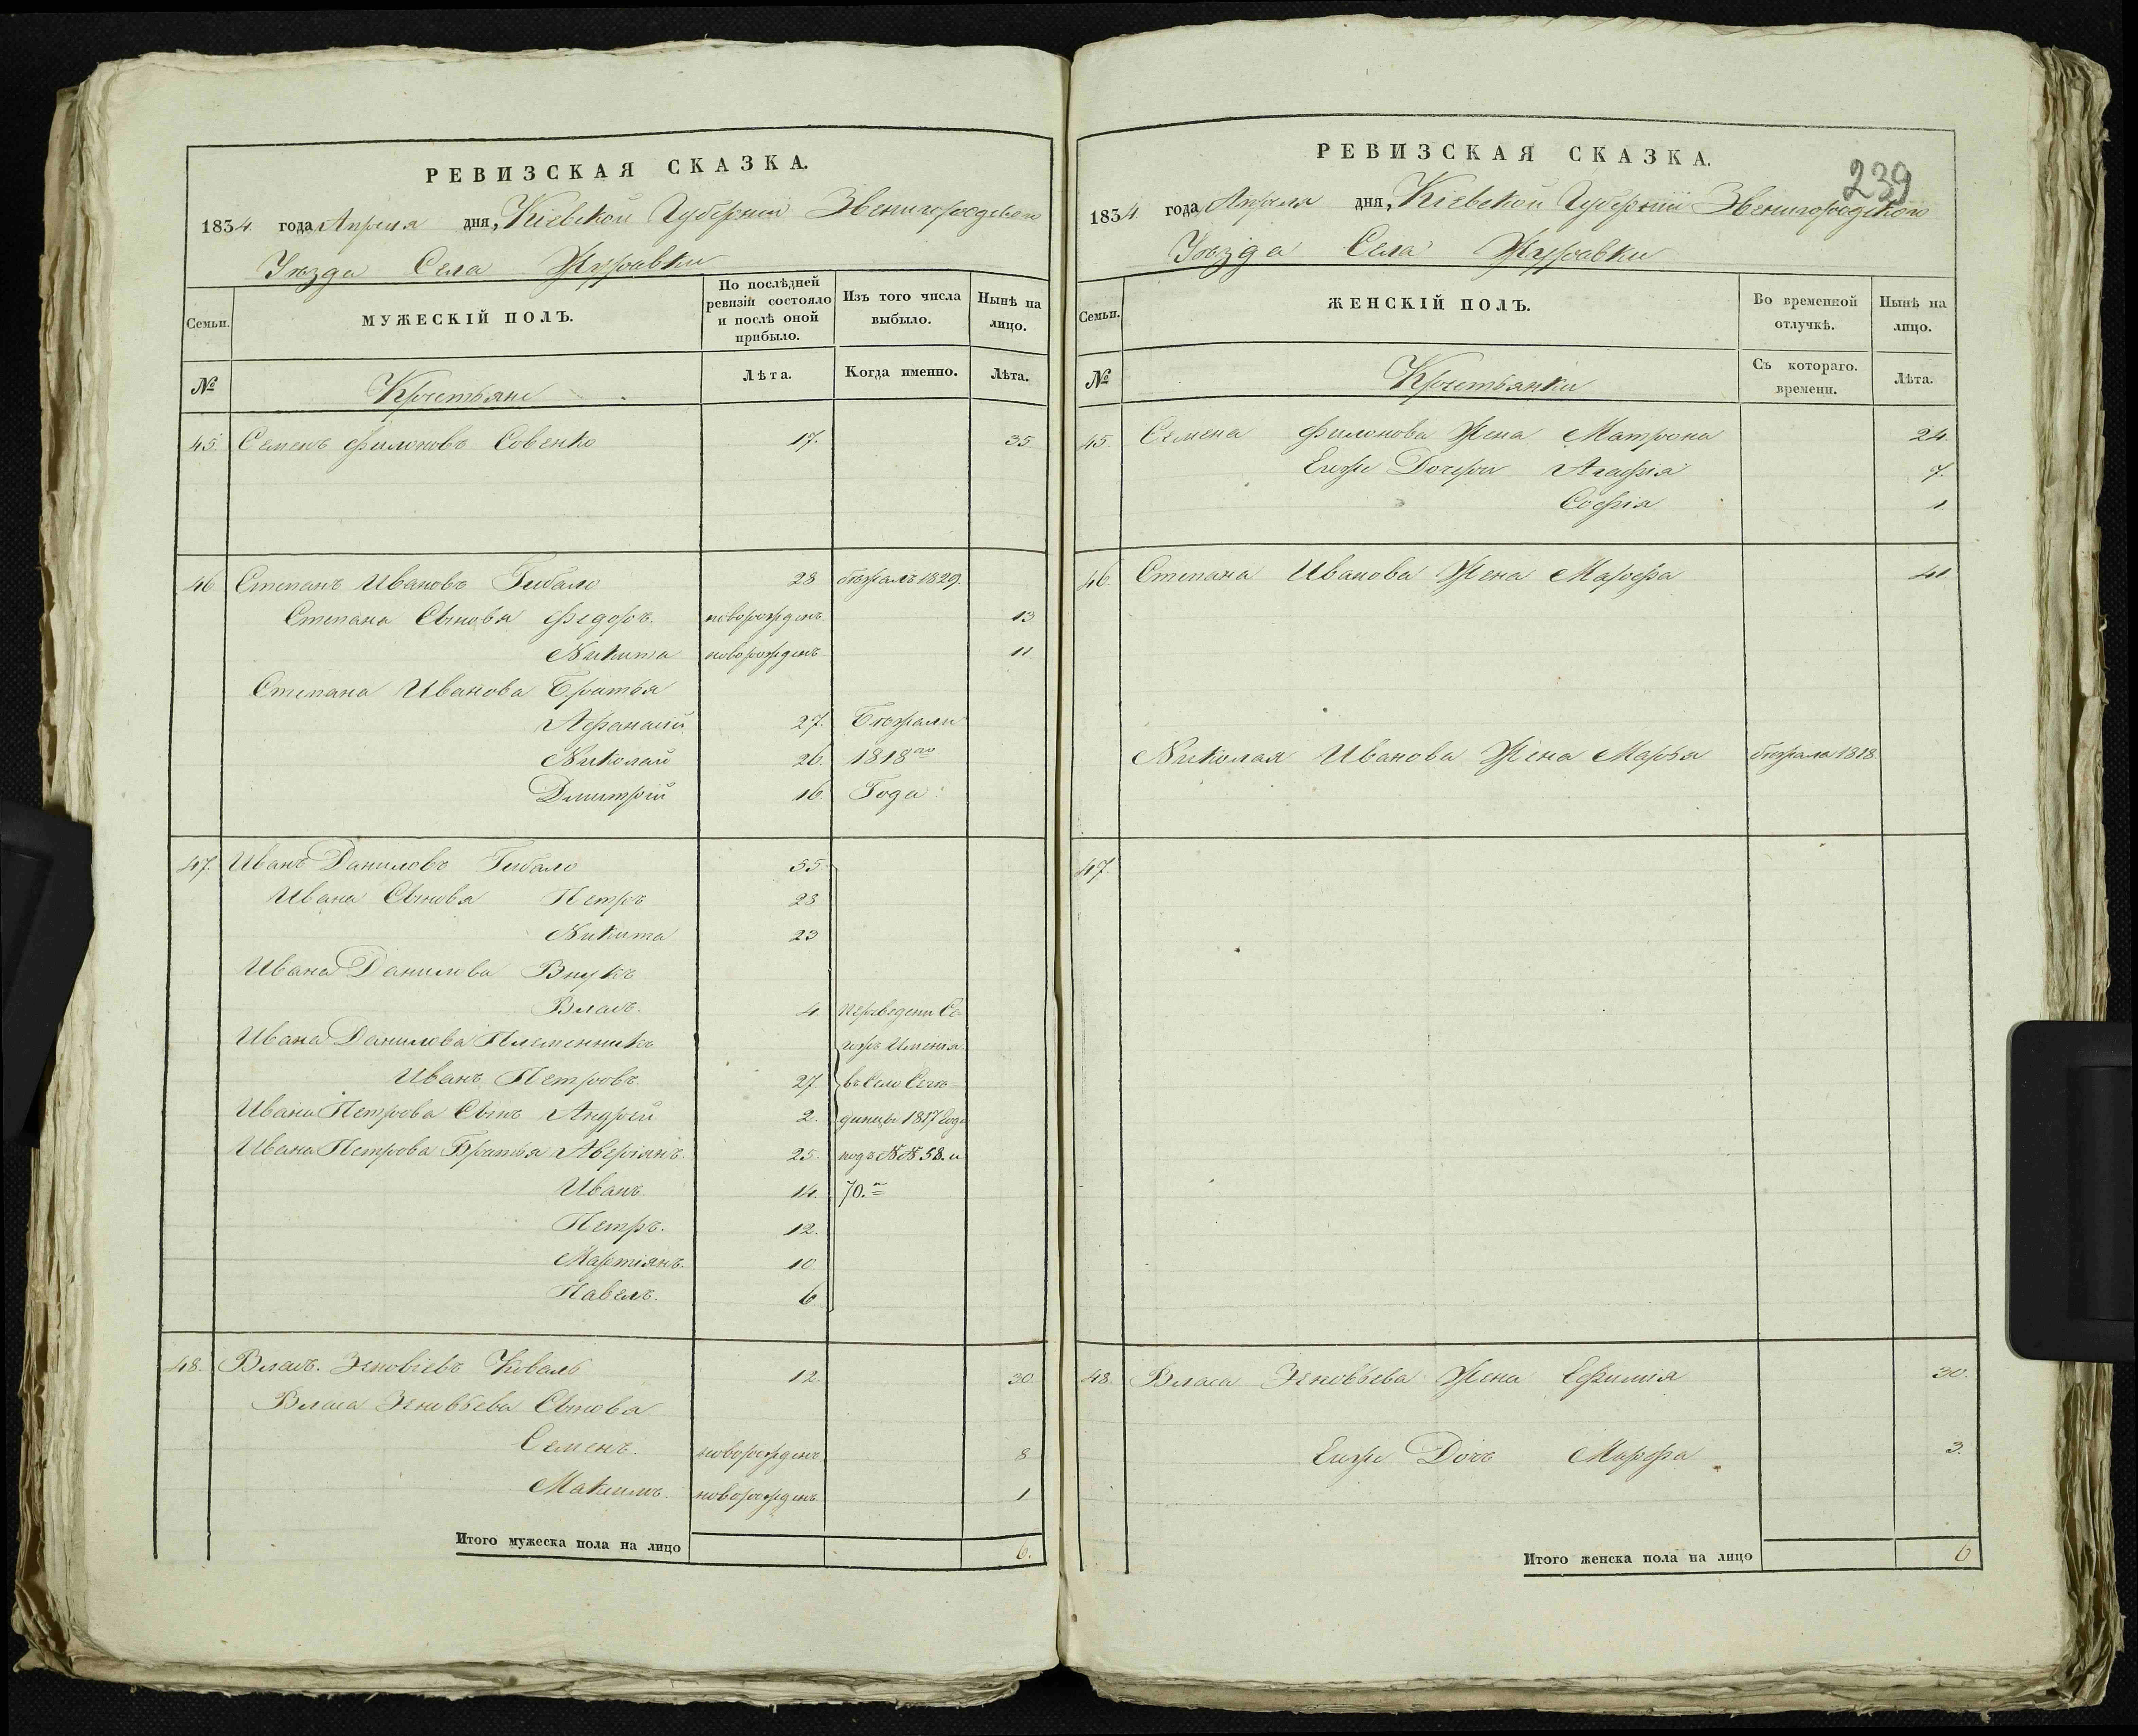 РЕВИЗСКАЯ СКАЗКА.
1834 года Апреля дня, Кіевской Губерніи Звенигородскаго
Уѣзда Села Журавки
Семьи.
МУЖЕСКІЙ ПОЛЪ.
По послѣдней ревизіи состояло и послѣ оной прибыло.
Изъ того числа выбыло.
Нынѣ на лицо.
№
Крестьяне
Лѣта.
Когда именно.
Лѣта.
45. Семенъ Филоновъ Совенко 17. 35.
46 Степанъ Ивановъ Гибало 28 бѣжалъ 1829.
Степана Сыновья Федоръ. новорожденъ 13
Никита новорожденъ 11
Степана Иванова Братья
Афанасій 27. Бѣжали
Николай 26. 1818го
Дмитрій 16. Года
47. Иванъ Даниловъ Гибало 55
Ивана Сыновья Петръ 28
Никита 23
Ивана Данилова Внукъ
Власъ. 4. переведены Се-
Ивана Данилова Племенникъ гожъ Именія
Иванъ Петровъ. 27. въ Село
Ивана Петрова Сынъ Андрей 2. 1817 Года
Ивана Петрова Братья Аверіянъ. 25. подъ №№ 58. и
Иванъ 14. 70.
Петръ. 12.
Мартіянъ. 10.
Павелъ. 6.
48. Власъ. Зеновіевъ Коваль 12. 30.
Власа Зеновьева Сынова
Семенъ. новорожденъ 8
Максимъ. новорожденъ 1
Итого мужеска пола на лицо 6.
РЕВИЗСКАЯ СКАЗКА.
239
1834. года Апреля дня, Кіевской Губерніи Звенигородскаго
Уѣзда Села Журавки
Семьи.
ЖЕНСКІЙ ПОЛЪ.
Во временной отлучкѣ.
Нынѣ на лицо.
№
Крестьянки
Съ котораго. времени.
Лѣта.
45. Семена Филонова Жена Матрона 24.
Ево же Дочери Агафія 7.
Софія 1
46 Степана Иванова Жена Марфа 41
Николая Иванова Жена Марья бежала 1818.
47.
48. Власа Зеновьева Жена Ефимія 30.
Ево же Дочь Марфа 3.
Итого женска пола на лицо 6